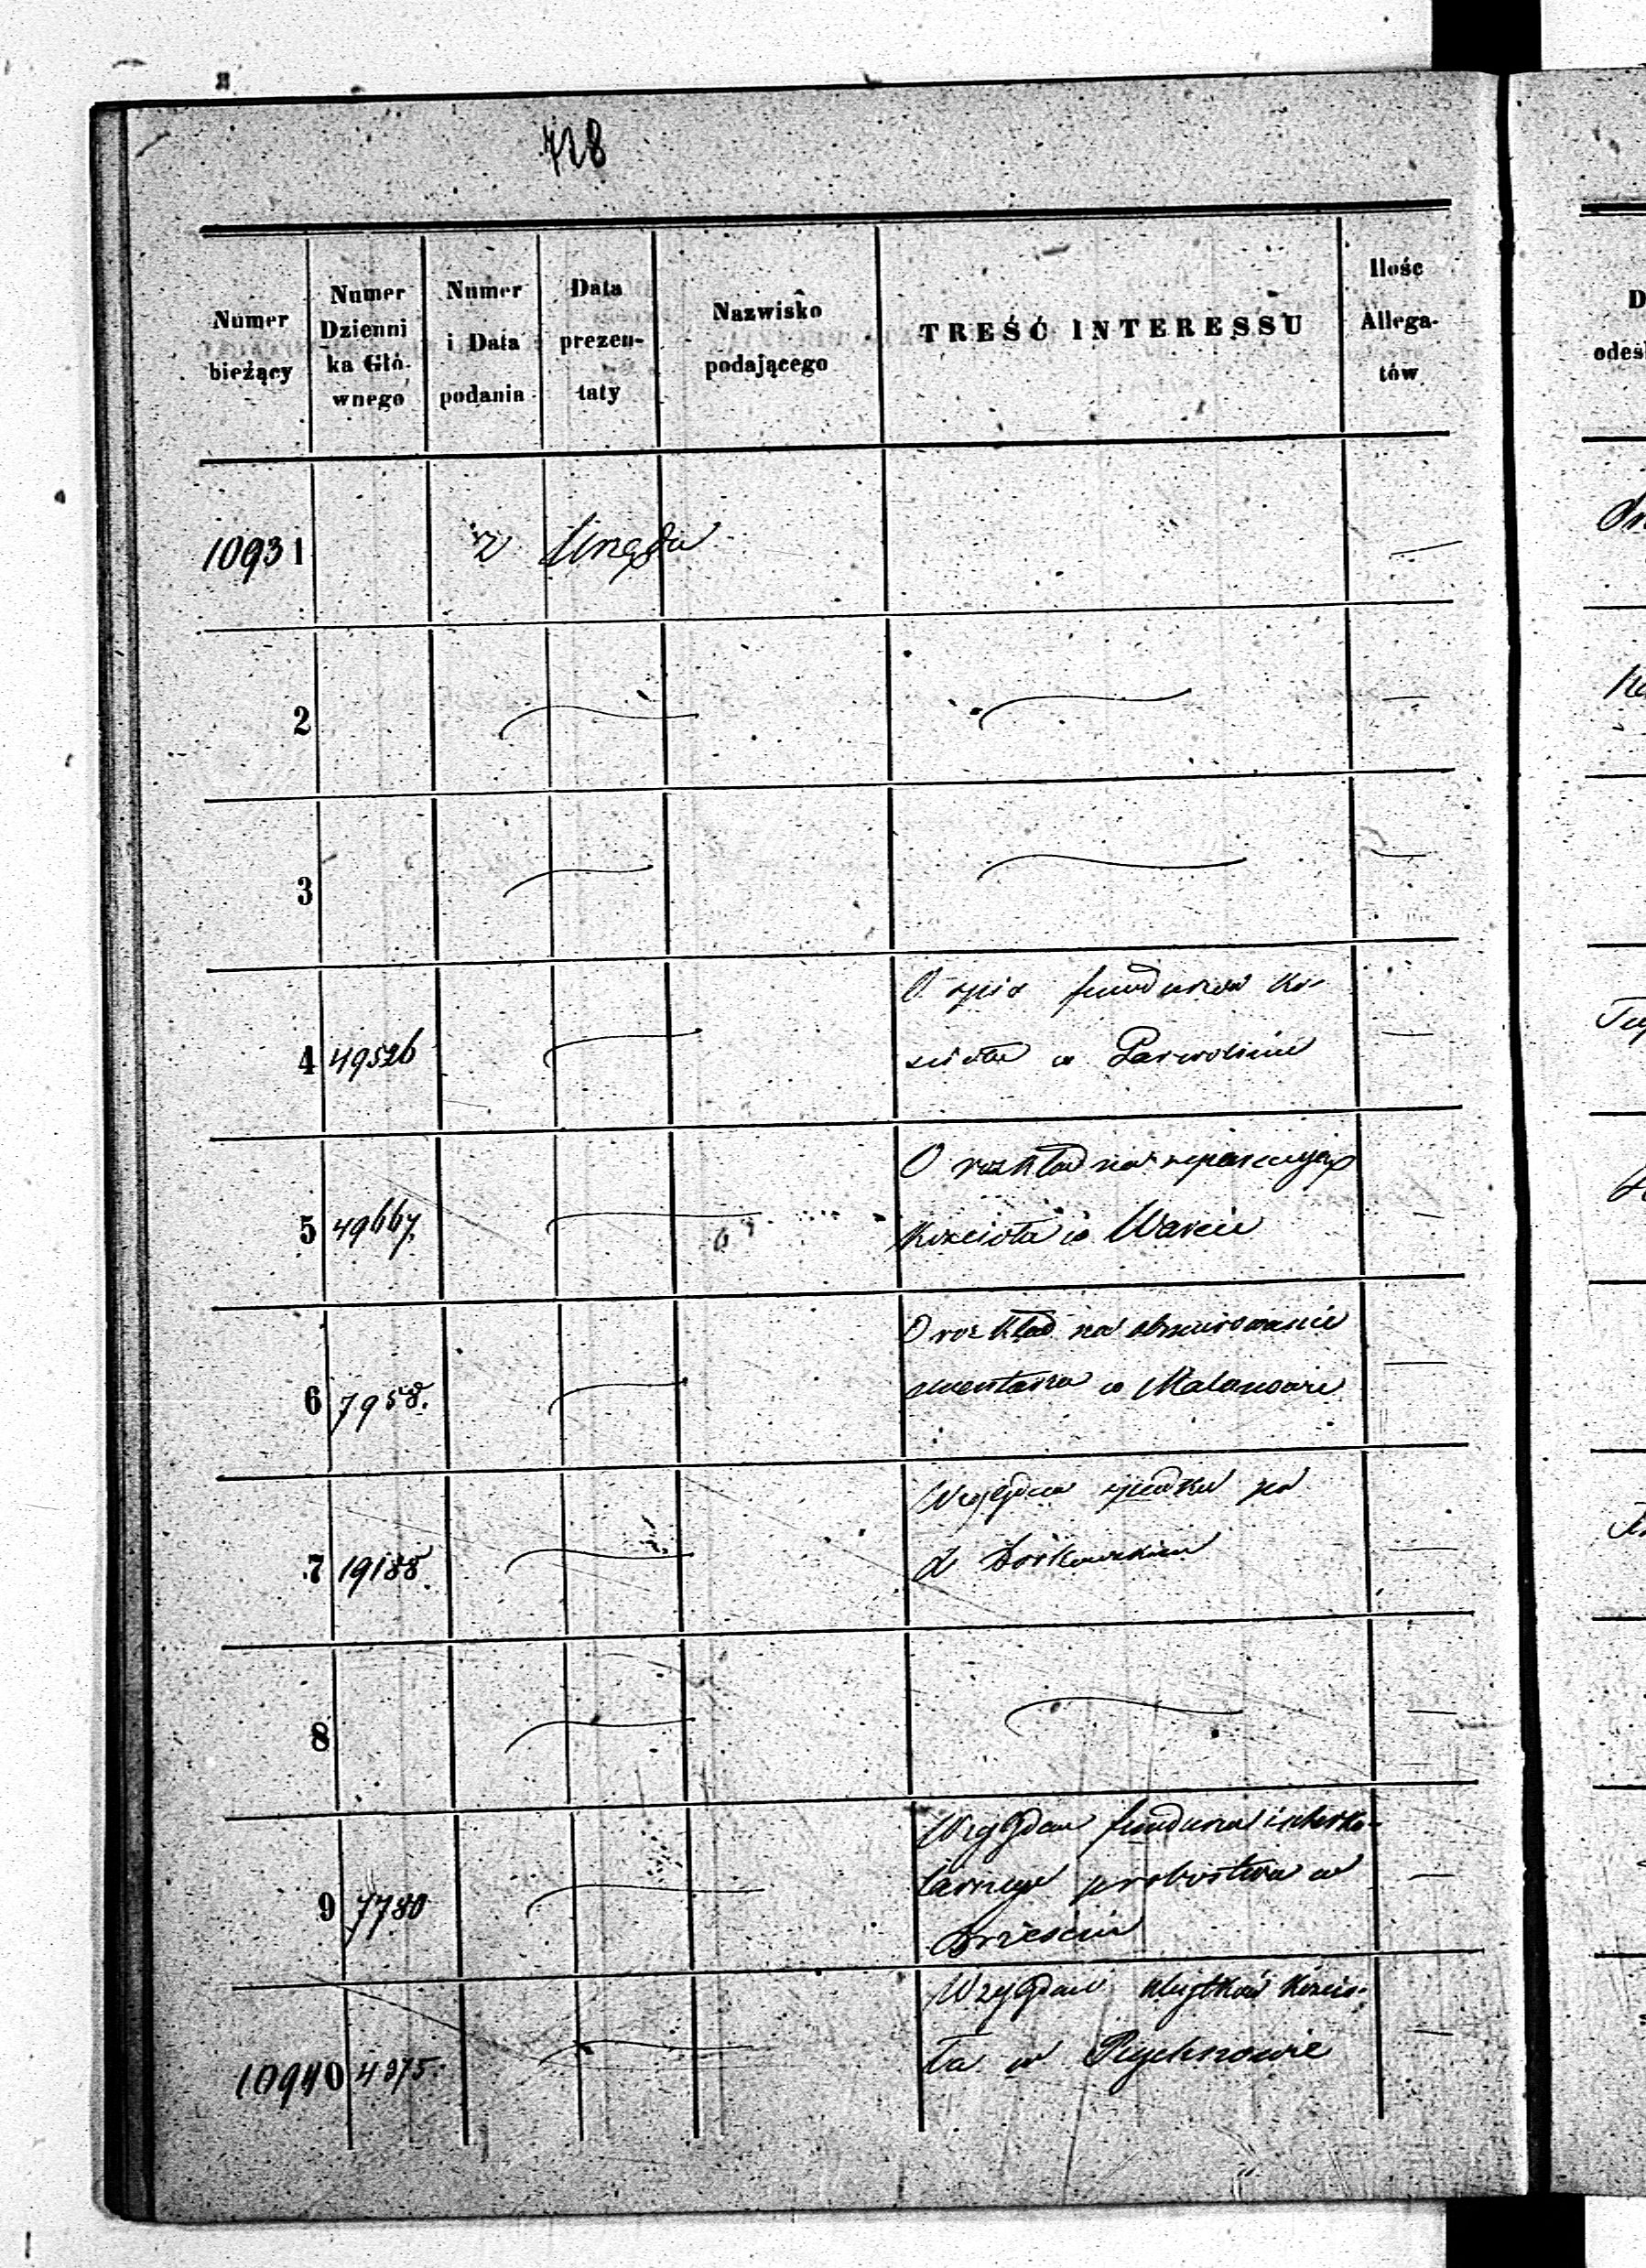 728
Numer bieżący
Numer Dzienni ka Głó- wnego
Numer i Data podania
Data prezen- taty
Nazwisko podającego
TREŚĆ INTERESSU
Ilość Allega- tów
10931 z Urzędu —
2 —
3 —
4 49526 O spis funduszów ko- —
ścioła w Parwolinie
5 49667. O rozkład na reparacyją —
Kościoła w Warcie
6 7958. O rozkład na obmurowanie —
cmentarza w Malanowie
7 19188. Względem spadku po —
Borkowskim
8 —
9 7780 Względem funduszu
probostwa w —
Brześciu
10940 4375. Względem Kościo- —
ła w Rychnowie